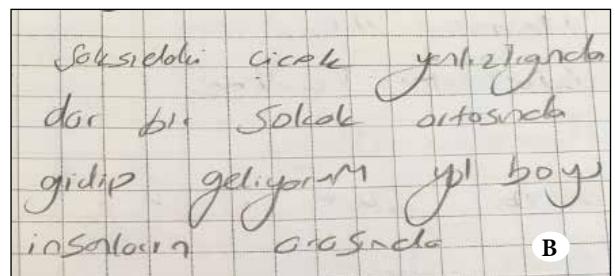 Saksıdaki çiçek yanlızlığında
dar bir Sokak ortasında
gidip geliyorum yol boyu
insanların arasında
B